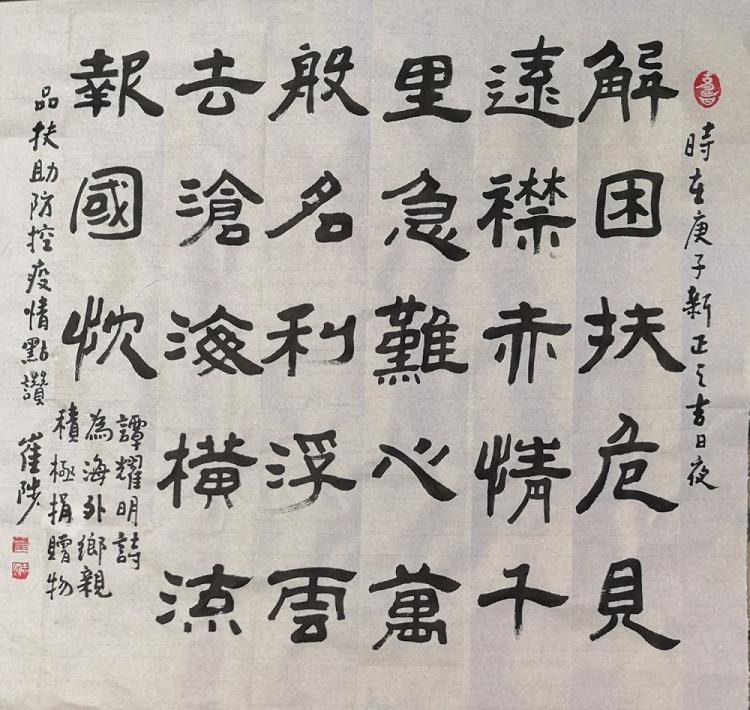 時在庚子新正之吉日夜
解困扶危見
遠襟赤情千
里急難心萬
般名利浮雲
去滄海橫流
報國忱
譚耀明詩
為海外鄉親
積極捐贈物
品扶助防控疫情點讚
崔陟